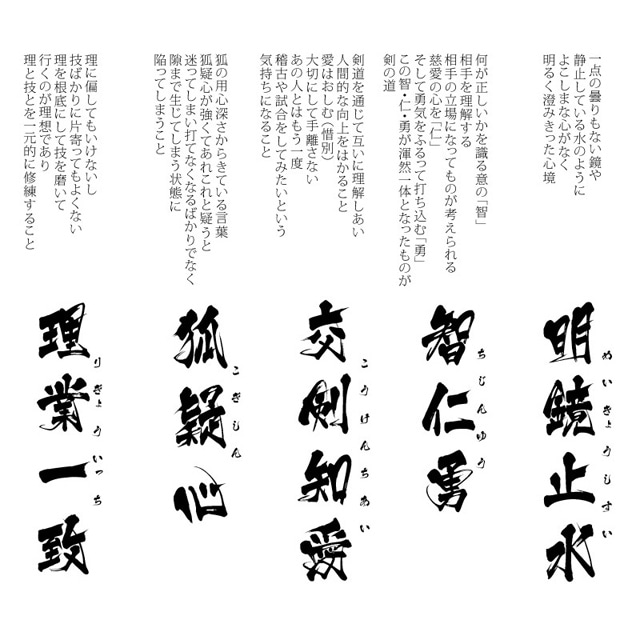 一点の曇りもない鏡や
静止している水のように
よこしまな心がなく
明るく澄みきった心境
明鏡止水
めいきょうしすい
何が正しいかを識る意の「智」
相手を理解する
相手の立場になってものが考えられる
慈愛の心を「仁」
そして勇気をふるって打ち込む「勇」
この智・仁・勇が渾然一体となったものが
剣の道
智仁勇
ちじんゆう
剣道を通じて互いに理解しあい
人間的な向上をはかること
愛はおしむ（惜別）
大切にして手離さない
あの人とはもう一度
稽古や試合をしてみたいという
気持ちになること
交剣知愛
こうけんちあい
狐の用心深さからきている言葉
狐疑心が強くてあれこれと疑うと
迷ってしまい打てなくなるばかりでなく
隙まで生じてしまう状態に
陥ってしまうこと
狐疑心
こぎしん
理に偏してもいけないし
技ばかりに片寄ってもよくない
理を根底にして技を磨いて
行くのが理想であり
理と技とを一元的に修練すること
理業一致
りぎょういっち